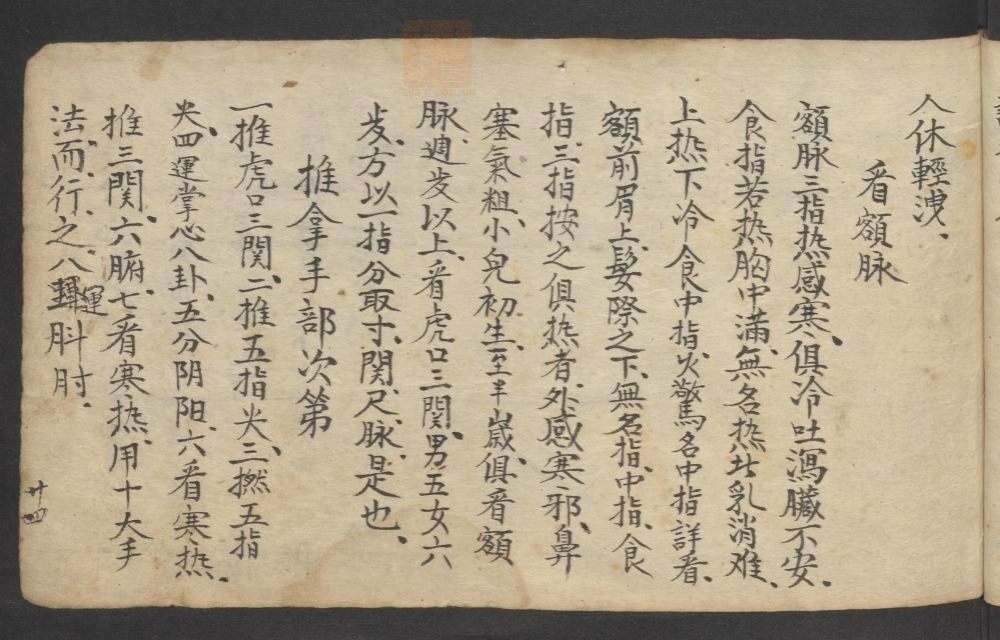 人休輕洩、
看額脉
額脉三指热感寒、俱冷吐瀉臓不安、
食指若热胸中滿、無名热壮乳消难、
上热下冷食中指、火驚名中指詳看、
額前眉上、髮際之下、無名指、中指、食
指、三指按之俱热者、外感寒邪、鼻
塞氣粗、小兒初生、至半歲、俱看額
脉、週岁以上、看虎口三関、男五女六
岁、方以一指分取寸、関、尺、脉、是也、
推拿手部次第
一推虎口三関、二推五指尖、三撚五指
尖、四運掌心八卦、五分阴阳、六看寒热、
推三関、六腑、七看寒热、用十大手
法、而行、之、八運斗肘、
廿四